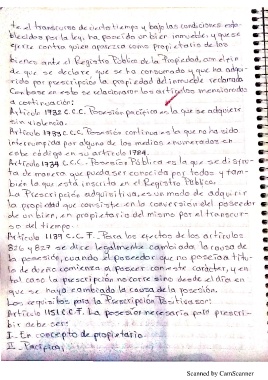 te el transcurso de cierto tiempo y bajo las condiciones esta-
blecidas por la ley, ha poseido un bien inmueble, y que se
ejerce contra quien aparezca como propietario de los
bienes ante el Registro Público de la Propiedad, con el fin
de que se declare que se ha consumado y que ha adqui-
rido por prescripción la propiedad del inmueble reclamado
Con base en esto se relacionaran los articulos mencionados
a continuación:
Articulo C.C.C. Posesión pacifica es la que se adquiere
sin violencia.
Articulo C.C.C. Posesión continua es la que no ha sido
interrumpida por alguno de los medios enumerados en
este código en su articulo
Articulo C.C.C. Posesión Pública es la que se disfru-
ta de manera que pueda ser conocida por todos y tam-
bién la que está inscrita en el Registro Público.
La Prescripción adquisitiva es un modo de adquirir
la propiedad que consiste en la conversión del poseedor
de un bien, en propietario del mismo por el transcur-
so del tiempo.
Articulo C.C.F. Para los efectos de los articulos
826 y 827 se dice legalmente cambiada la causa de
la posesión, cuando el poseedor que no poseia titu-
lo de dueño comienza a poseer con este carácter, y en
tal caso la prescripción no corre sino desde el dia en
que se haya cambiado la causa de la posesión.
Los requisitos para la Prescripción Positiva son:
Articulo 1151 C.C.F. La posesión necesaria para prescri-
bir debe ser:
I.- En concepto de propietario.
II.- Pacifica;
Scanned by CamScanner